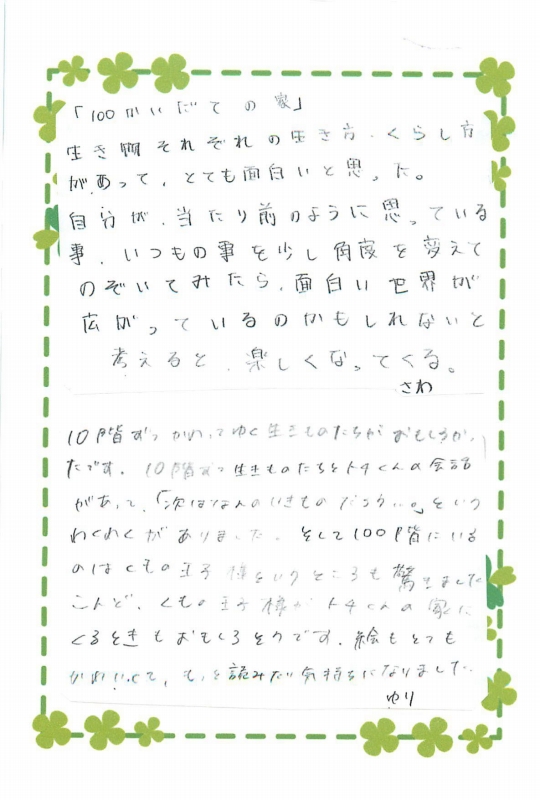 「100かいだての家」
生き物それぞれの生き方・くらし方
があって、とても面白いと思った。
自分が、当たり前のように思っている
事、いつもの事を少し角度を変えて
のぞいてみたら、面白い世界が
広がっているのかもしれないと
考えると、楽しくなってくる。
さわ
10階ずつかわってゆく生きものたちがおもしろかっ
たです。10階ずつ生きものたちとトチくんの会話
があって、「次はなんのいきものだろう。」という
わくわくがありました。そして100階にいる
のはくもの王子様というところも驚きました
こんど、くもの王子様がトチくんの家に
くるときもおもしろそうです。絵もとても
かわいくて、もっと読みたい気持ちになりました。
ゆり